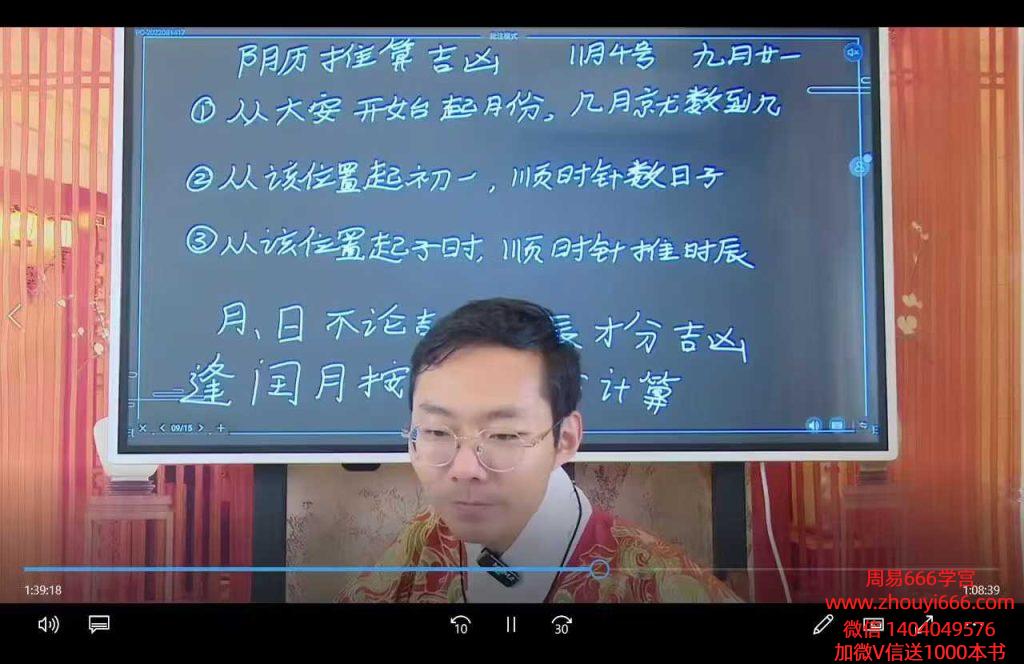 PC-2022081417
批注模式
阴历推算吉凶 11月4号 九月廿一
①从大安开始起月份,几月就数到几
②从该位置起初一,顺时针数日子
③从该位置起子时,顺时针推时辰
月、日不论吉 辰才分吉凶
逢闰月按 计算
09/15
1:39:18
1:08:39
10
30
周易666学宫
www.zhouyi666.com
微信1404049576
加微V信送1000本书